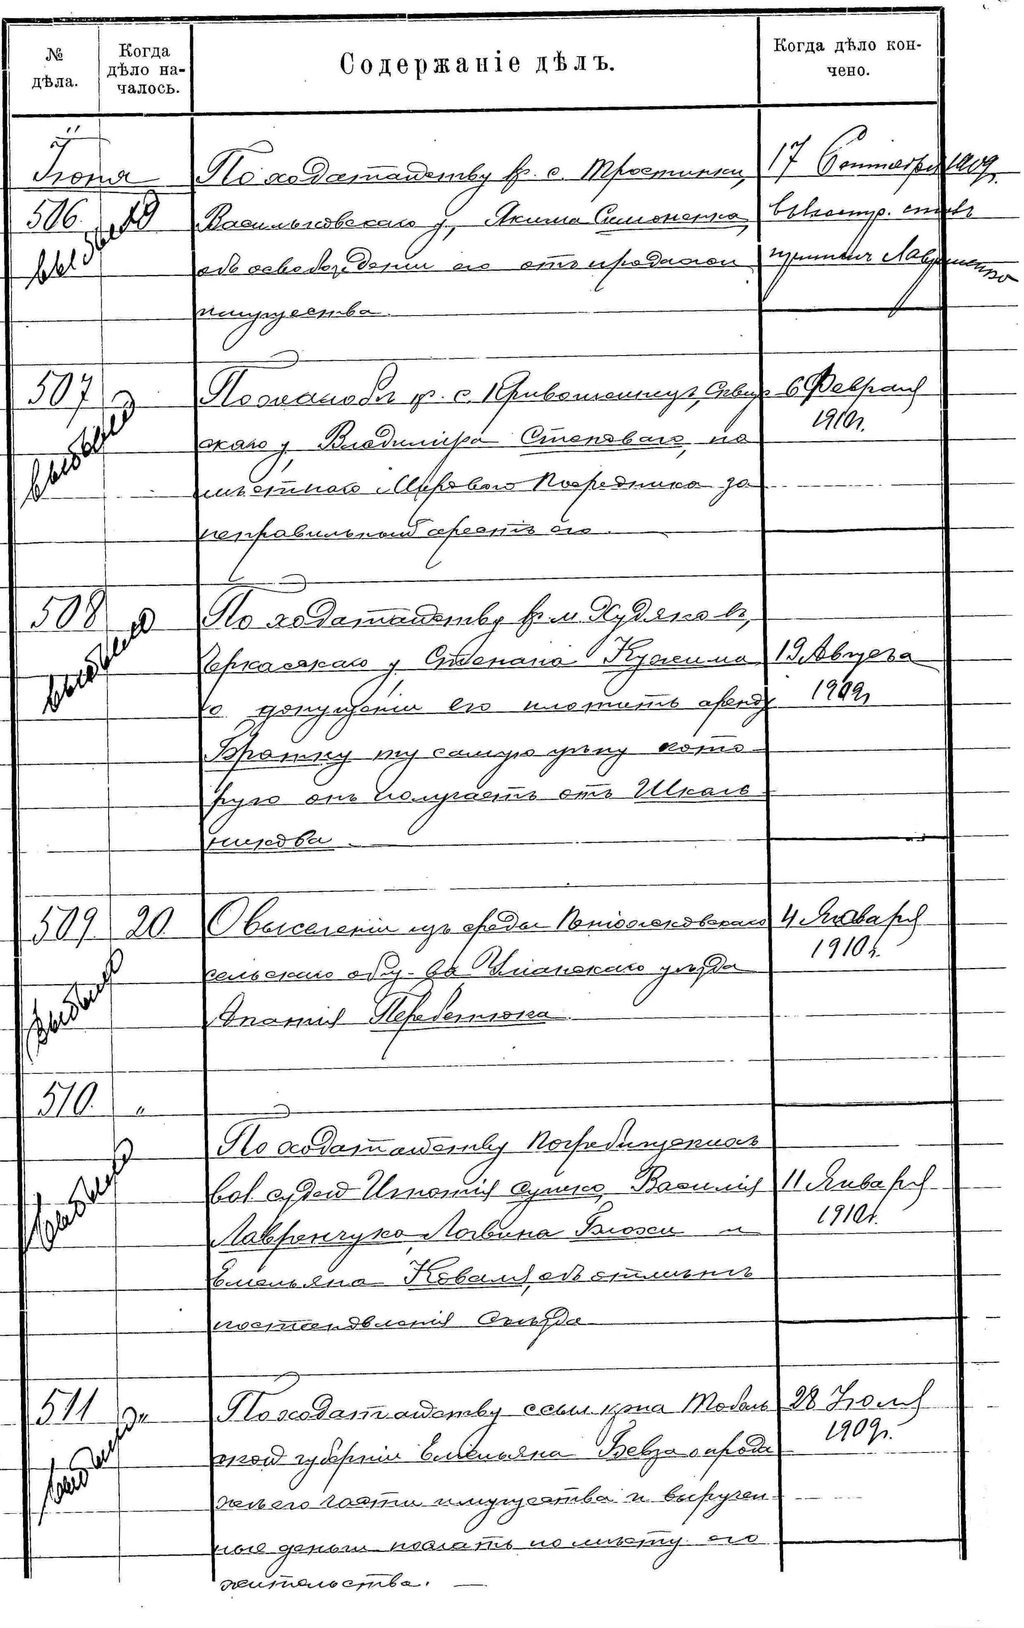 № дѣла.
Когда дѣло началось.
Содержаніе дѣлъ.
Когда дѣло кончено.
Іюня
506.
выбыло
По ходатайству кр. с. Тростинки,
Васильковскаго у, Якима Симоненка,
объ освобожденіи его отъ продажи
имущества.
17 Сентября 1909г.
507
выбыло
По жалобѣ кр. с. Кривошеинецъ, Сквир
скаго у, Владиміра Степоваго, на
мѣстнаго Мирового Посредника за
неправильный арестъ его.
6 Февраля
1910г.
508
выбыло
По ходатайству кр. м. Худяковъ,
Черкасскаго у Степана Кужима
о допущеніи его платить аренду
Братку ту самую цѣну кото
рую онъ получаетъ отъ Школь
никова.
19 Августа
1909г
509
20
выбыло
О выселеніи изъ среды
сельскаго общ-ва Уманскаго уѣзда
Ипатія Перебетюка.
4 Января
1910г.
510.
"
выбыло
По ходатайству Погребищенских
вол. судей Игнатія Сушко, Василія
Лавренчука, Логвина Блохи и
Емельяна Коваля, объ отмѣнѣ
постановленія Съѣзда
11 Января
1910г.
511
"
выбыло
По ходатайству ссыл. крна Тоболь
ской губерніи Емельяна Бевза о прода
жѣ его части имущества и выручен
ные деньги послать по мѣсту его
жительства.
28 Іюля
1909г.